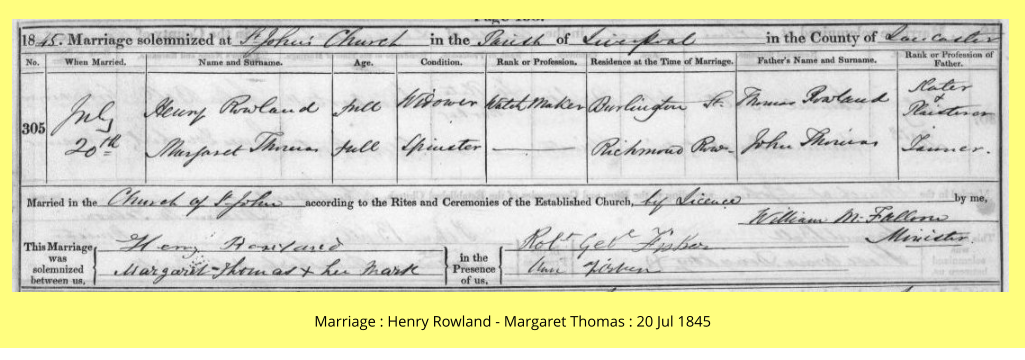 1845. Marriage solemnized at St John's Church in the Parish of Liverpool in the County of Lancaster
No. When Married. Name and Surname. Age. Condition. Rank or Profession. Residence at the Time of Marriage. Father's Name and Surname. Rank or Profession of Father.
305 July 20th Henry Rowland full Widower Watch Maker Burlington St. Thomas Rowland Slater & Plaisterer
Margaret Thomas full Spinster Richmond Row Jöhn Thomas Tanner.
Married in the Church of St John according to the Rites and Ceremonies of the Established Church, by Licence by me,
William McFallow
Minister
This Marriage was solemnized between us, Henry Rowland in the Presence of us, Robt Geoe Fisher
Margaret Thomas x her Mark Ann
Marriage : Henry Rowland - Margaret Thomas : 20 Jul 1845